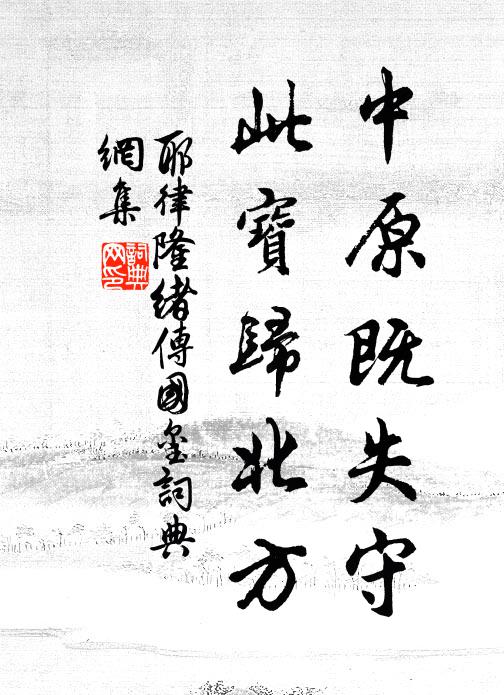 中原既失守
此寶歸北方
耶律隆緒傳國璽詞典
網集
詞典网印